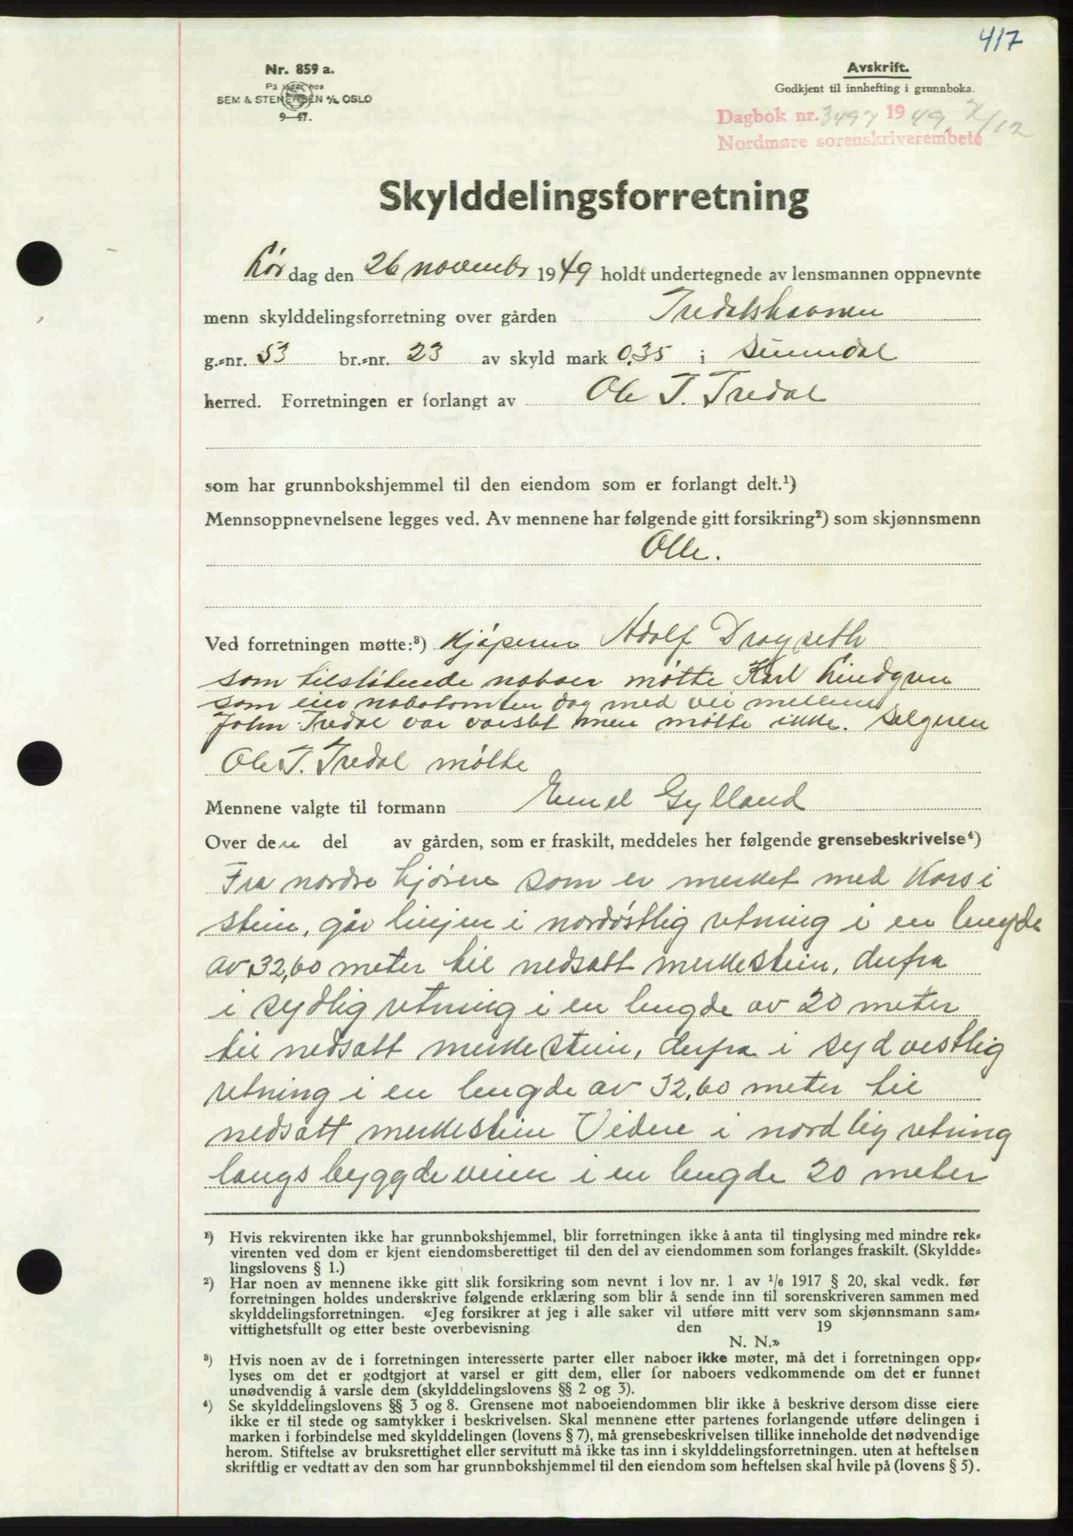 417
Nr. 859 a.
På lager hos
SEM & STENERSEN A/S, OSLO
9—47.
Avskrift.
Godkjent til innhefting i grunnboka.
Dagbok nr. 3497 1949 7/12
Nordmøre sorenskriverembete
Skylddelingsforretning
Lør dag den 26 novembr 1949 holdt undertegnede av lensmannen oppnevnte
menn skylddelingsforretning over gården Tredalshavnen
g.-nr. 53 br.-nr. 23 av skyld mark 0,35 i Sunndal
herred. Forretningen er forlangt av Ole T. Tredal
som har grunnbokshjemmel til den eiendom som er forlangt delt.¹)
Mennsoppnevnelsene legges ved. Av mennene har følgende gitt forsikring²) som skjønnsmenn
Alle.
Ved forretningen møtte:³) Kjøperen Adolf Drøyseth
som tilstøtende naboer møtte Karl Lindgren
som eier nabotomten dog med vei mellem
John Tredal var varslet men møtte ikke. Selgeren
Ole T. Tredal møtte
Mennene valgte til formann Gylland
Over den del av gården, som er fraskilt, meddeles her følgende grensebeskrivelse⁴)
Fra nordre hjørne som er merket med Kors i
stein, går linjen i nordøstlig retning i en lengde
av 32,60 meter til nedsatt merkestein, derfra
i sydlig retning i en lengde av 20 meter
til nedsatt merkestein, derfra i sydvestlig
retning i en lengde av 32,60 meter til
nedsatt merkestein Videre i nordlig retning
langs byggdeveien i en lengde 20 meter
¹) Hvis rekvirenten ikke har grunnbokshjemmel, blir forretningen ikke å anta til tinglysing med mindre rek-
virenten ved dom er kjent eiendomsberettiget til den del av eiendommen som forlanges fraskilt. (Skyldde-
lingslovens § 1.)
²) Har noen av mennene ikke gitt slik forsikring som nevnt i lov nr. 1 av 1/6 1917 § 20, skal vedk. før
forretningen holdes underskrive følgende erklæring som blir å sende inn til sorenskriveren sammen med
skylddelingsforretningen. «Jeg forsikrer at jeg i alle saker vil utføre mitt verv som skjønnsmann sam-
vittighetsfullt og etter beste overbevisning den 19
N. N.»
³) Hvis noen av de i forretningen interesserte parter eller naboer ikke møter, må det i forretningen opp-
lyses om det er godtgjort at varsel er gitt dem, eller for naboers vedkommende om det er funnet
unødvendig å varsle dem (skylddelingslovens §§ 2 og 3).
⁴) Se skylddelingslovens §§ 3 og 8. Grensene mot naboeiendommen blir ikke å beskrive dersom disse eiere
ikke er til stede og samtykker i beskrivelsen. Skal mennene etter partenes forlangende utføre delingen i
marken i forbindelse med skylddelingen (lovens § 7), må grensebeskrivelsen tillike inneholde det nødvendige
herom. Stiftelse av bruksrettighet eller servitutt må ikke tas inn i skylddelingsforretningen. uten at heftelsen
skriftlig er vedtatt av den som har grunnbokshjemmel til den eiendom som heftelsen skal hvile på (lovens § 5).